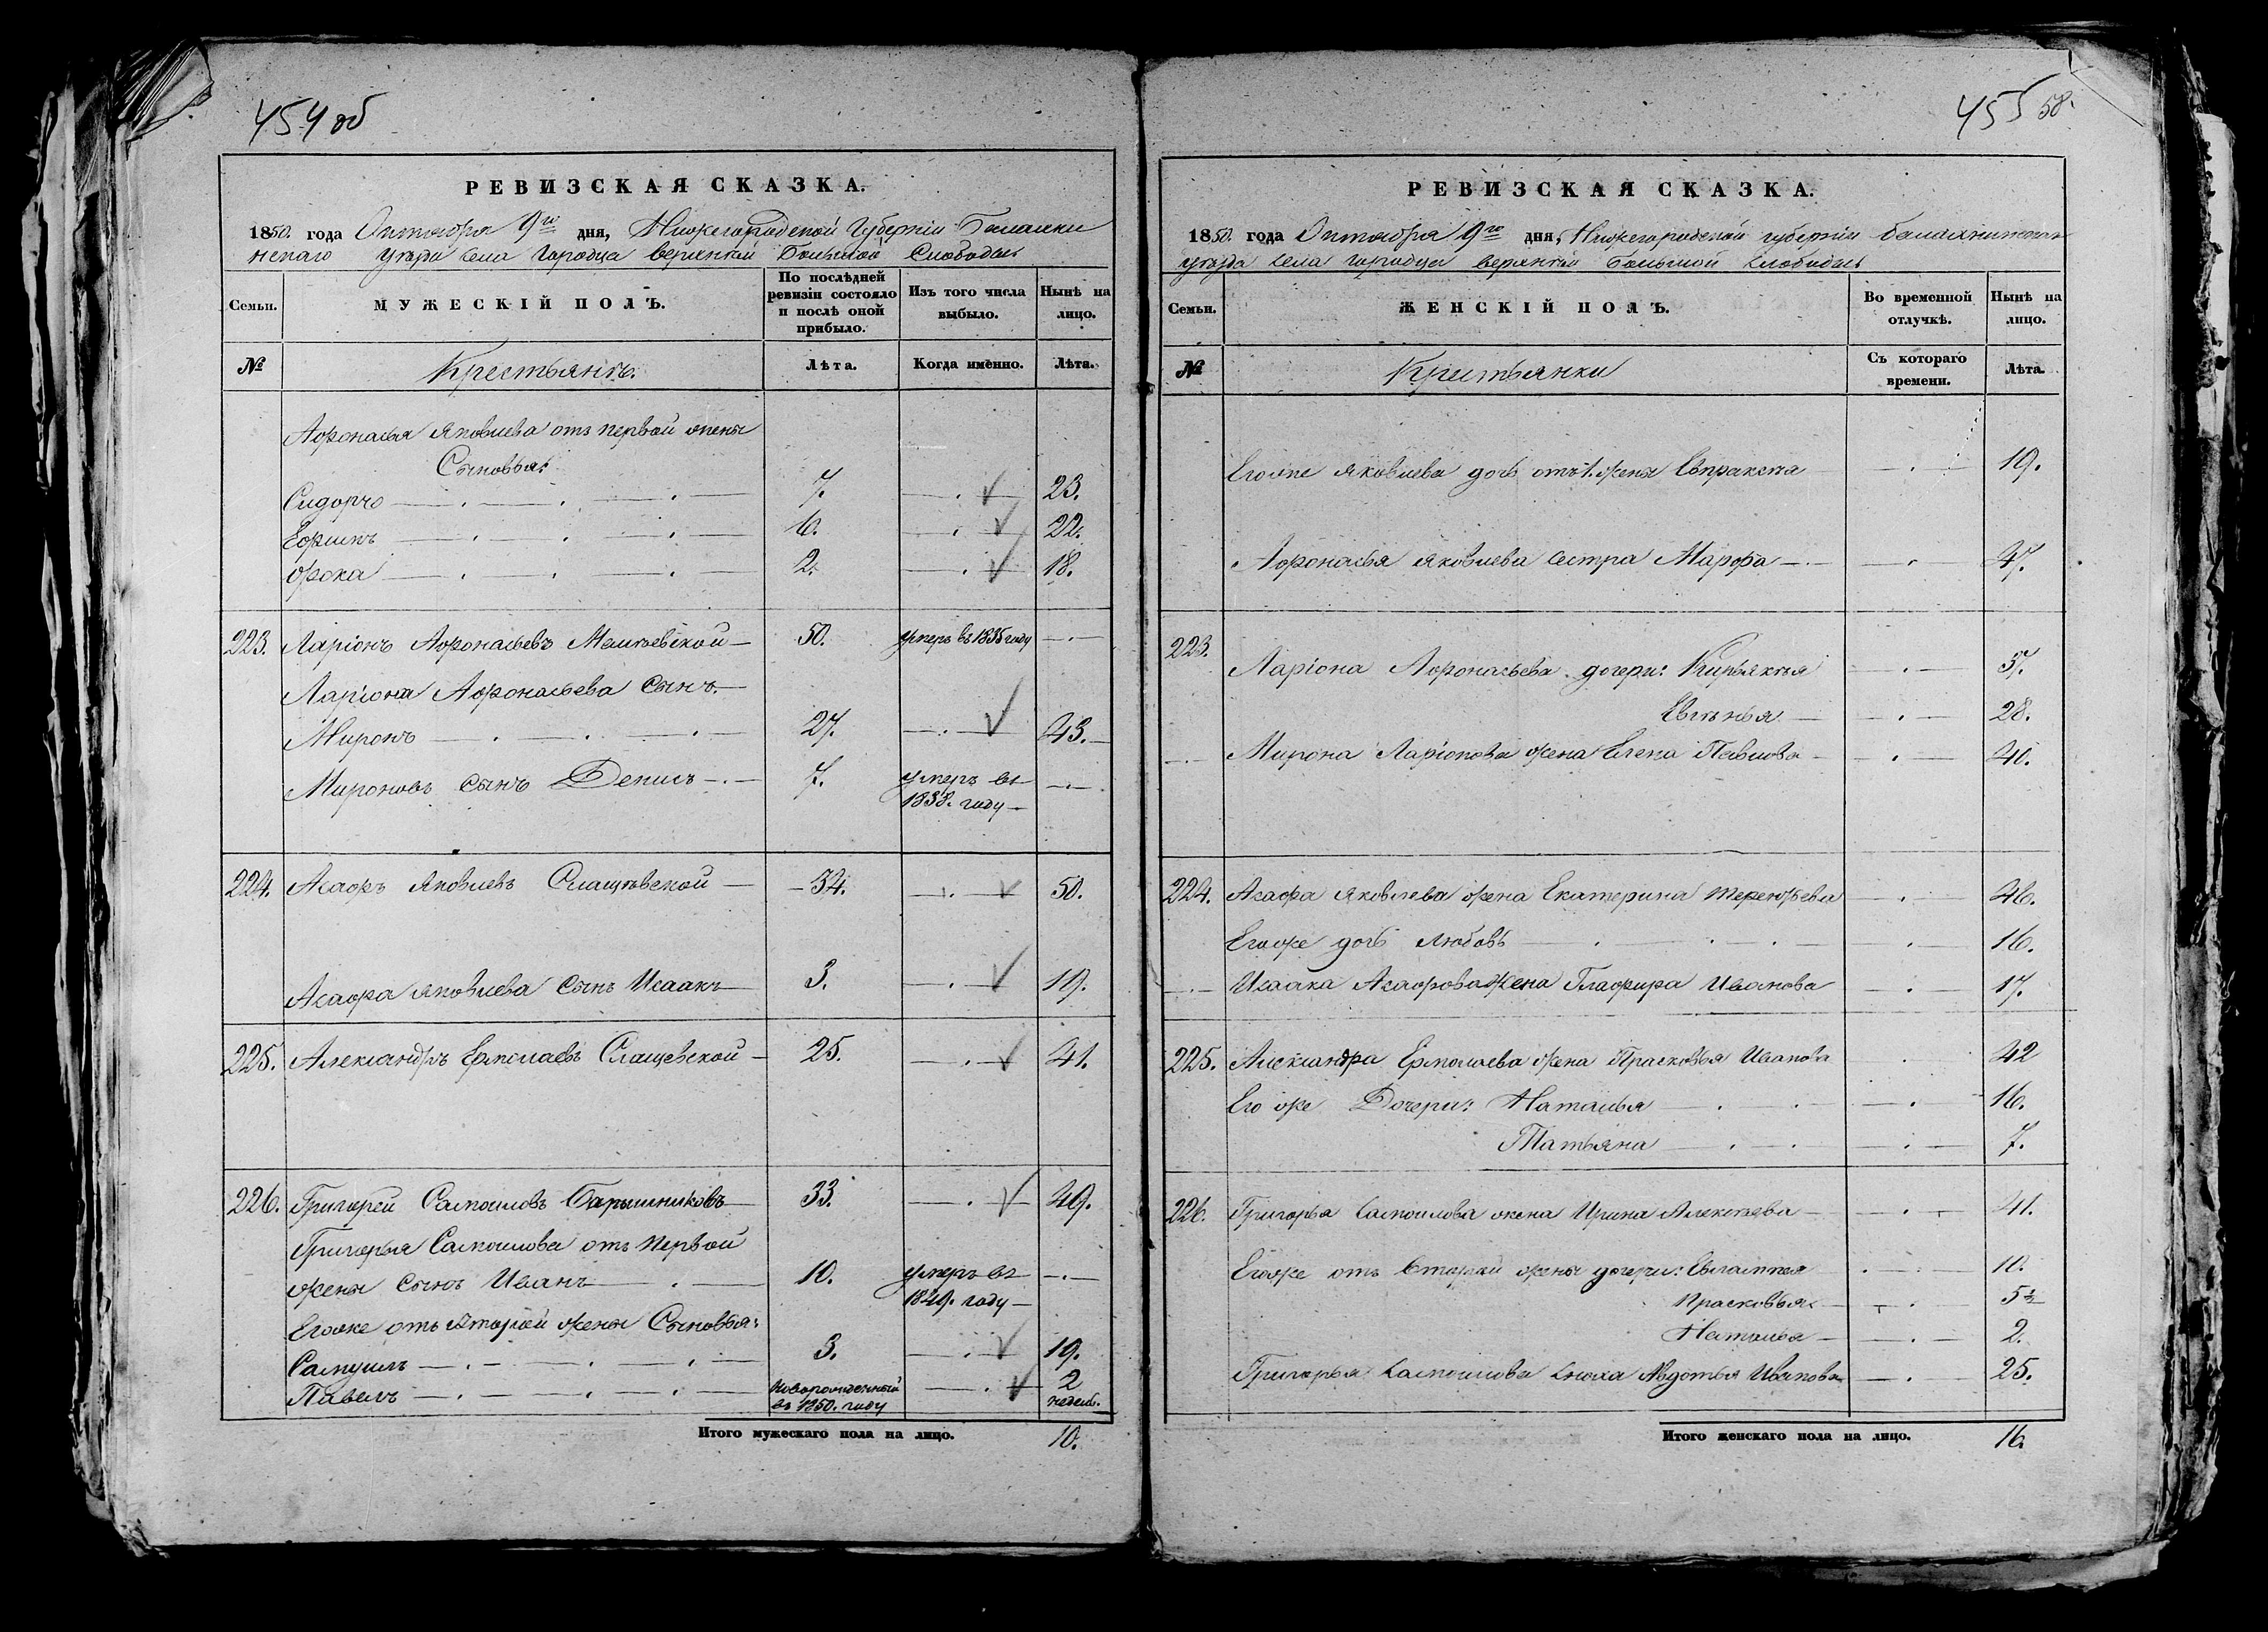 454 об
РЕВИЗСКАЯ СКАЗКА.
1850. года Октября 9го дня, Нижегородской Губерніи Балахни
нскаго уѣзда села Городца верхней Большой Слободы
Семьи. МУЖЕСКІЙ ПОЛЪ. По послѣдней ревизіи состояло и послѣ оной прибыло. Изъ того числа выбыло. Нынѣ на лицо.
№ Крестьянъ. Лѣта. Когда именно. Лѣта.
Афонасья Яковлева отъ первой жены
Сыновья:
Сидоръ 7. 23.
Ефимъ 6. 22.
Фока 2. 18.
223. Ларіонъ Афонасьевъ 50. умеръ въ 1835 году
Ларіона Афонасьева сынъ
Миронъ 27. 43.
Мироновъ сынъ Денисъ 7. умеръ въ
1838. году
224. Асафъ Яковлевъ Слащевской 34. 50.
Асафа Яковлева сынъ Исаакъ 3. 19.
225. Александръ Ермолаевъ Слащевской 25. 41.
226. Григорей Самоиловъ Барышниковъ 33. 49.
Григорья Самоилова отъ первой
жены сынъ Иванъ 10. умеръ въ
1849. году
Егоже отъ второй жены Сыновья:
Самуилъ 3. 19.
Павелъ новорожденный въ 1850. году 2 недель.
Итого мужескаго пола на лицо. 10.
455 58.
РЕВИЗСКАЯ СКАЗКА.
1850. года Октября 9го дня, Нижегородской губерніи балахнинскаго
уѣзда села городца верхней большой слободы
Семьи. ЖЕНСКІЙ ПОЛЪ. Во временной отлучкѣ. Нынѣ на лицо.
№ Крестьянки Съ котораго времени. Лѣта.
Егоже Яковлева дочь отъ 1. жены Евпраксея 19.
Афонасья Яковлева сестра Марфа 47.
223. Ларіона Афонасьева дочери: 37.
Евгенья 28.
Мирона Ларіонова жена Елена Павлова 40.
224. Асафа Яковлева жена Екатерина Терентьева 46.
Егоже дочь Любовь 16.
Исаака Асафова жена Глафира Иванова 17.
225. Александра Ермолаева жена Прасковья Иванова 42
Его же Дочери: Наталья 16.
Татьяна 7.
226. Григорья Самоилова жена Ирина Алексѣева 41.
Егоже отъ второй жены дочери: Евлампея 10.
Прасковья 5½
Наталья 2.
Григорья Самоилова сноха Авдотья Иванова 25.
Итого женскаго пола на лицо. 16.